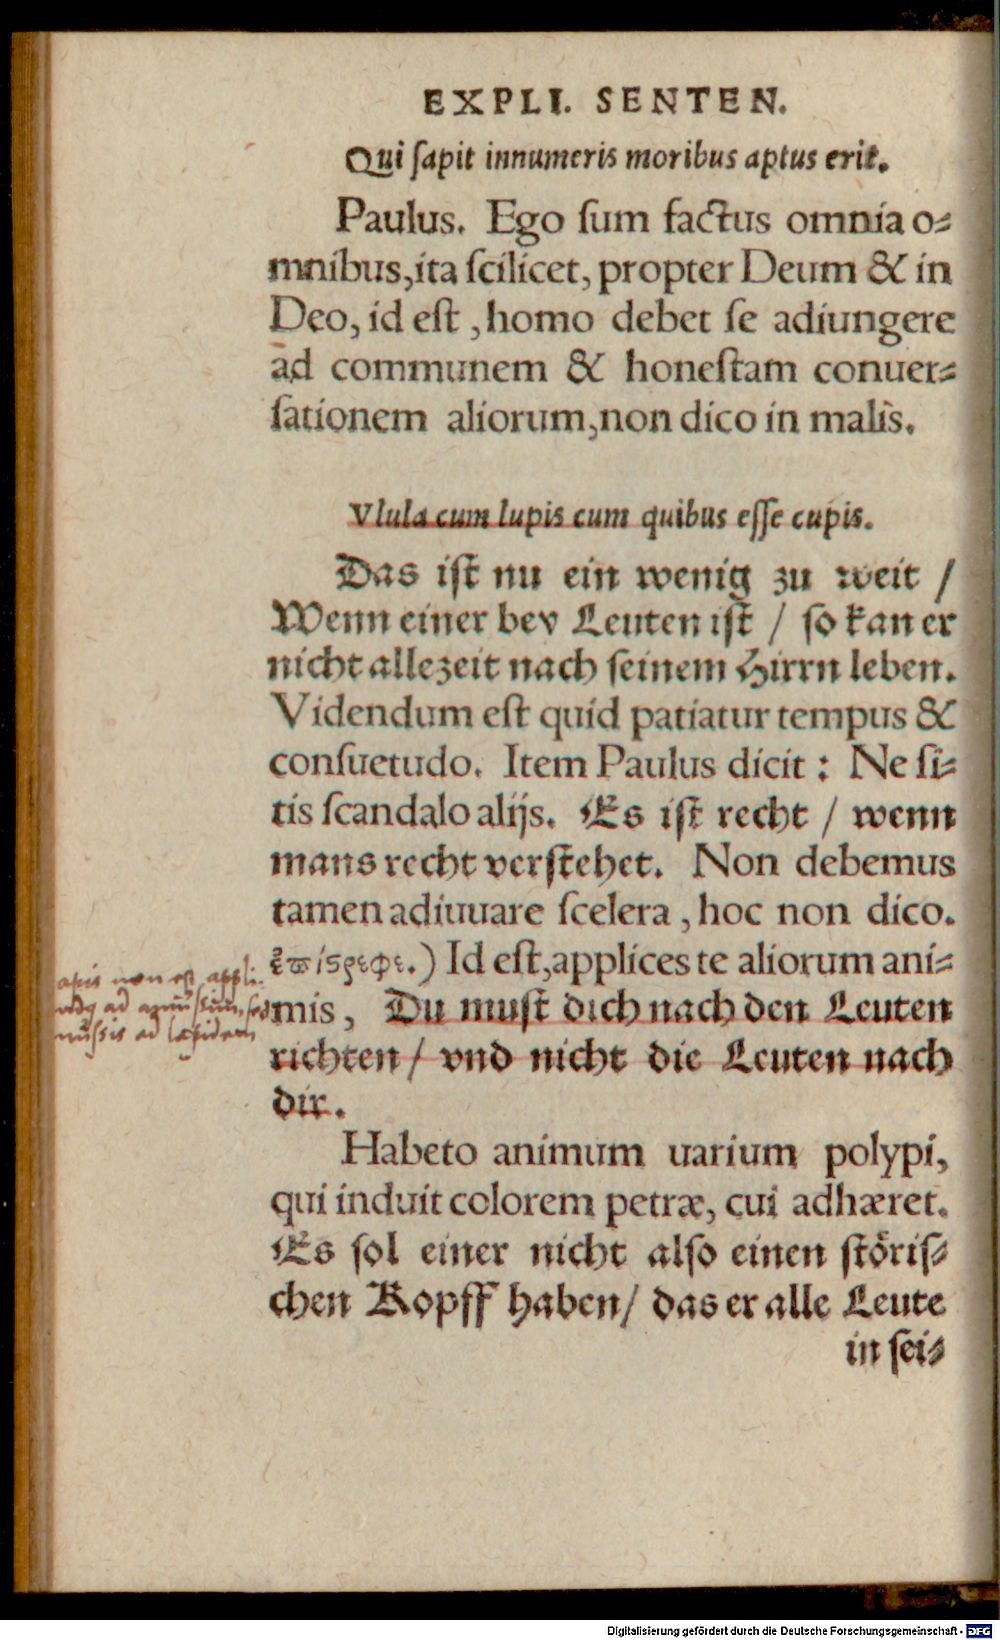 EXPLI. SENTEN.
Qui ſapit innumeris moribus aptus erit.
Paulus. Ego ſum factus omnia o⸗
mnibus, ita ſcilicet, propter Deum & in
Deo, id eſt, homo debet ſe adiungere
ad communem & honeſtam conuer⸗
ſationem aliorum, non dico in malis.
Vlula cum lupis cum quibus eſſe cupis.
Das iſt nu ein wenig zu weit /
Wenn einer bey Leuten iſt / ſo kan er
nicht allezeit nach ſeinem Hirrn leben.
Videndum eſt quid patiatur tempus &
conſuetudo. Item Paulus dicit: Ne ſi⸗
tis ſcandalo alijs. Es iſt recht / wenn
mans recht verſtehet. Non debemus
tamen adiuuare ſcelera, hoc non dico.
ἐπίςρεφε.) Id eſt, applices te aliorum ani⸗
mis, Du muſt dich nach den Leuten
richten / vnd nicht die Leuten nach
dir.
apis non est appli
ad amussium, sed
mussis ad lapidem
Habeto animum uarium polypi,
qui induit colorem petræ, cui adhæret.
Es ſol einer nicht alſo einen ſtöriſ⸗
chen Kopff haben / das er alle Leute
in ſei⸗
Digitalisierung gefördert durch die Deutsche Forschungsgemeinschaft - DFG